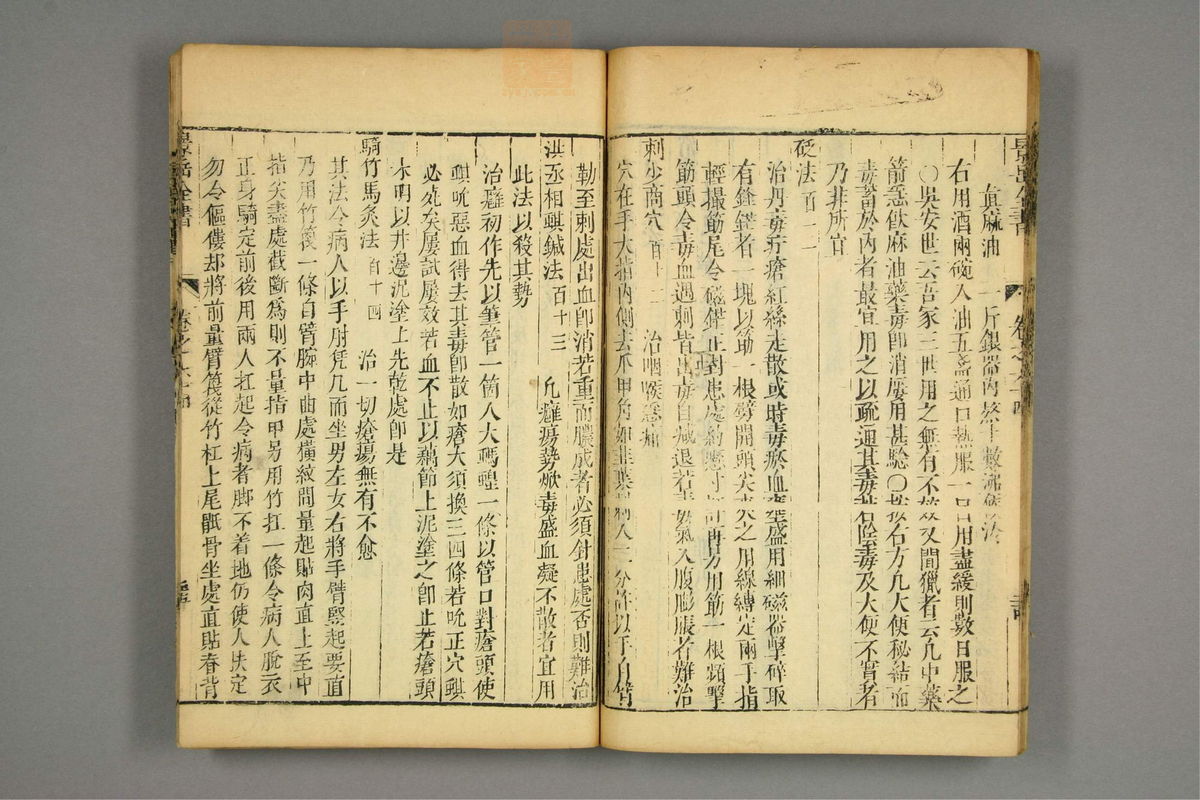 真麻油 一斤銀器內熬十數沸候冷
右用酒兩碗入油五盞通口熱服一日用盡緩則數日服之
○吳安世云吾家三世用之無有不效又聞獵者云凡中藥
箭急飲麻油藥毒即消屢用甚驗○按右方凡大便秘結而
毒蓄於內者最宜用之以疏通其毒若陰毒及大便不實者
乃非所宜
砭法 百十二
治丹毒疔瘡紅絲走散或時毒瘀血壅盛用細磁器擊碎取
有鋒鋩者一塊以筯一根劈開頭尖夾之用線縛定兩手指
輕撮筯尾令磁鋩正對患處約懸寸許再另用筯一根頻擊
筯頭令毒血遇刺皆出毒自減退若毒氣入腹膨脹者難治
刺少商穴 百十二 治咽喉急痛
穴在手大指內側去爪甲角如韭葉刺入二分許以手自臂
勒至刺處出血即消若重而膿成者必須針患處否則難治
洪丞相螟鍼法 百十三 凡癰瘍勢焮毒盛血凝不散者宜用
此法以殺其勢
治癰初作先以筆管一箇入大螞蝗一條以管口對瘡頭使
螟吮惡血得去其毒即散如瘡大須換三四條若吮正穴螟
必死矣屢試屢效若血不止以藕節上泥塗之即止若瘡頭
未明以井邊泥塗上先乾處即是
騎竹馬灸法 百十四 治一切瘡瘍無有不愈
其法令病人以手肘凭几而坐男左女右將手臂竪起要直
乃用竹篾一條自臂腕中曲處橫紋間量起貼肉直上至中
指尖盡處截斷爲則不量指甲另用竹扛一條令病人脫衣
正身騎定前後用兩人扛起令病者脚不着地仍使人扶定
勿令傴僂却將前量臂篾從竹杠上尾骶骨坐處直貼脊背
景岳全書
卷之六十四